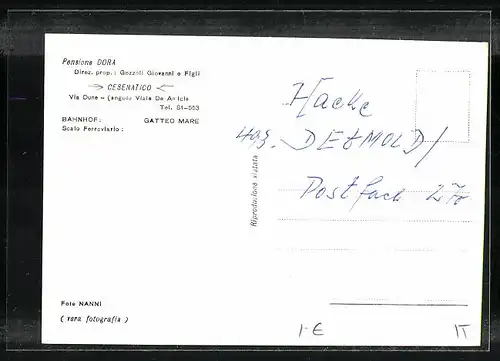 Pensione DORA
Direz. prop.: Gozzoli Giovanni e Figli
CESENATICO
Via Dune - (angolo Viale De Amicis
Tel. 81-663
BAHNHOF: GATTEO MARE
Scalo Ferroviario:
Hacke
493 DETMOLD/
Postfach 270
Riproduzione vietata
Foto NANNI
( vera fotografia )
1-€
IT